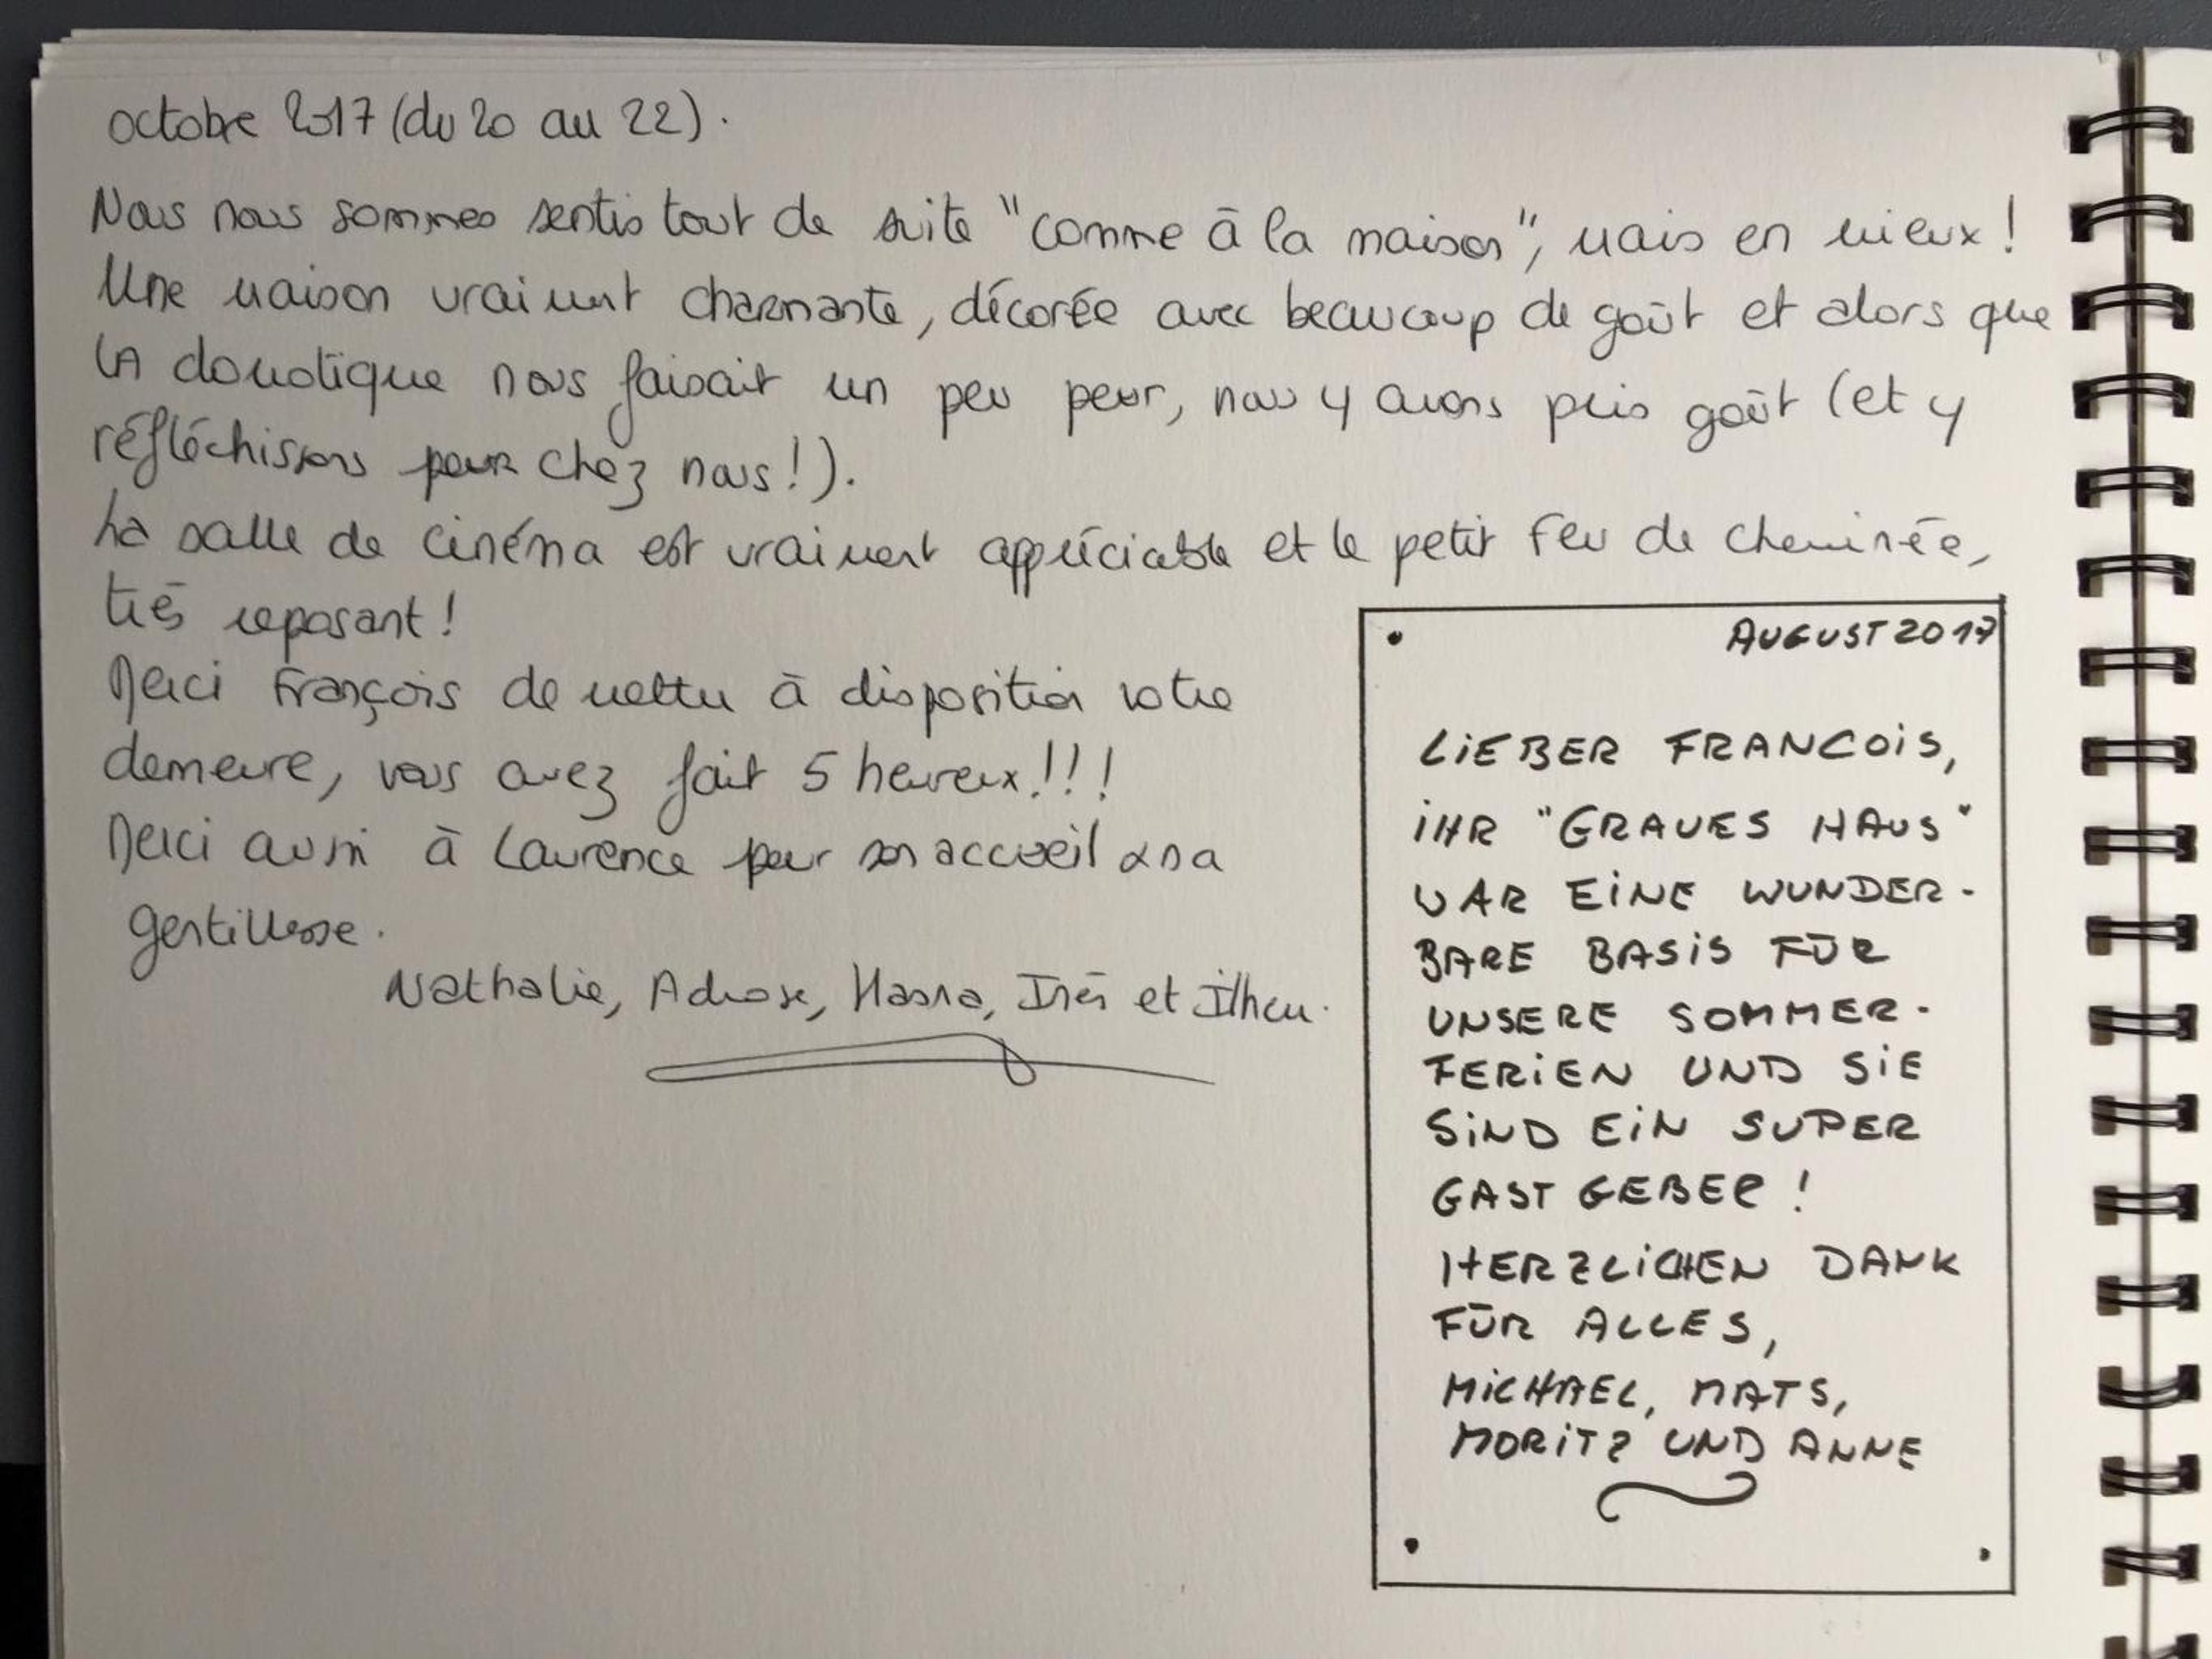 octobre 2017 (du 20 au 22).
Nous nous sommes sentis tout de suite "comme à la maison", mais en mieux !
Une maison vraiment charmante, décorée avec beaucoup de goût et alors que
la domotique nous faisait un peu peur, nous y avons pris goût (et y
réfléchissons pour chez nous !).
La salle de cinéma est vraiment appréciable et le petit feu de cheminée,
très reposant !
Merci François de mettre à disposition votre
demeure, vous avez fait 5 heureux !!!
Merci aussi à Laurence pour son accueil & sa
gentillesse.
Nathalie, Hasna, Inès et
AUGUST 2017
LIEBER FRANCOIS,
IHR "GRAUES HAUS"
WAR EINE WUNDER-
BARE BASIS FÜR
UNSERE SOMMER-
FERIEN UND SIE
SIND EIN SUPER
GASTGEBER !
HERZLICHEN DANK
FÜR ALLES,
MICHAEL, MATS,
MORITZ UND ANNE